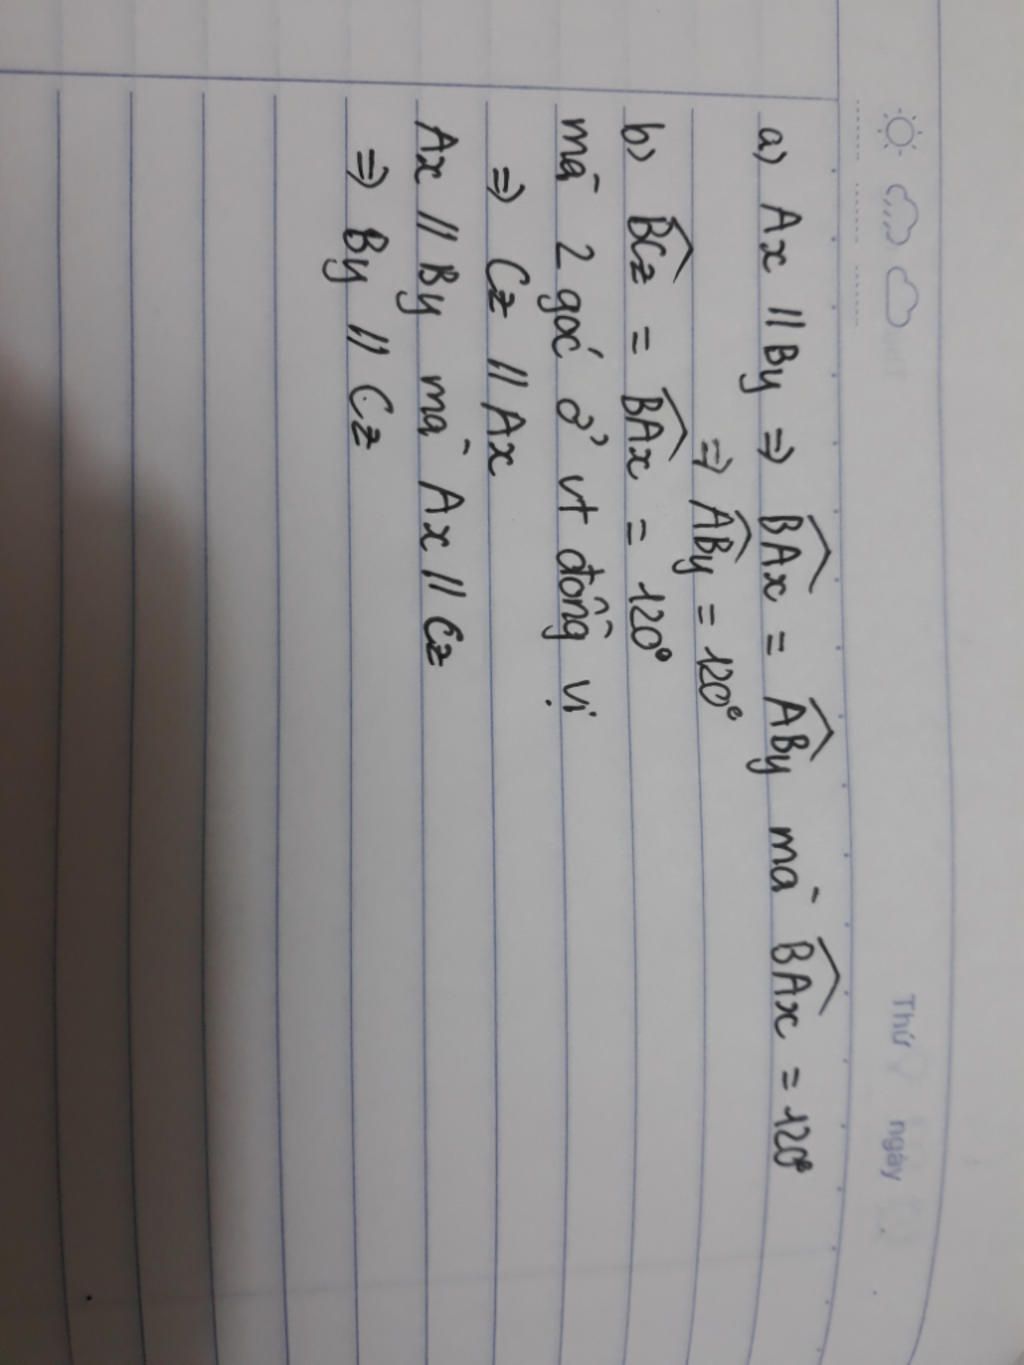 Thứ ngày
a) Ax // By ⇒ \widehat{BAx} = \widehat{ABy} mà \widehat{BAx} = 120°
⇒ \widehat{ABy} = 120°
b) \widehat{BCz} = \widehat{BAx} = 120°
mà 2 góc ở vt đồng vị
⇒ Cz // Ax
Ax // By mà Ax // Cz
⇒ By // Cz